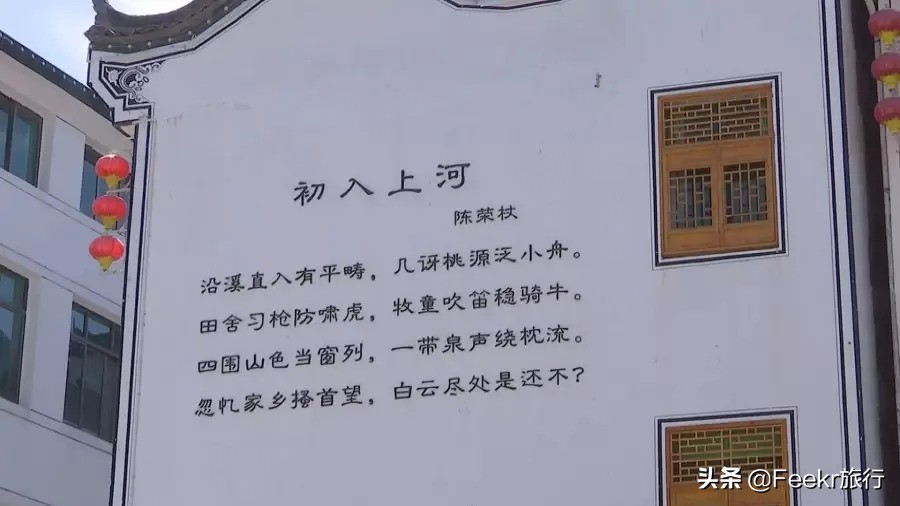 初入上河
陈荣杖
沿溪直入有平畴，几讶桃源泛小舟。
田舍习枪防啸虎，牧童吹笛稳骑牛。
四围山色当窗列，一带泉声绕枕流。
忽忆家乡搔首望，白云尽处是还不？
头条@Feekr旅行